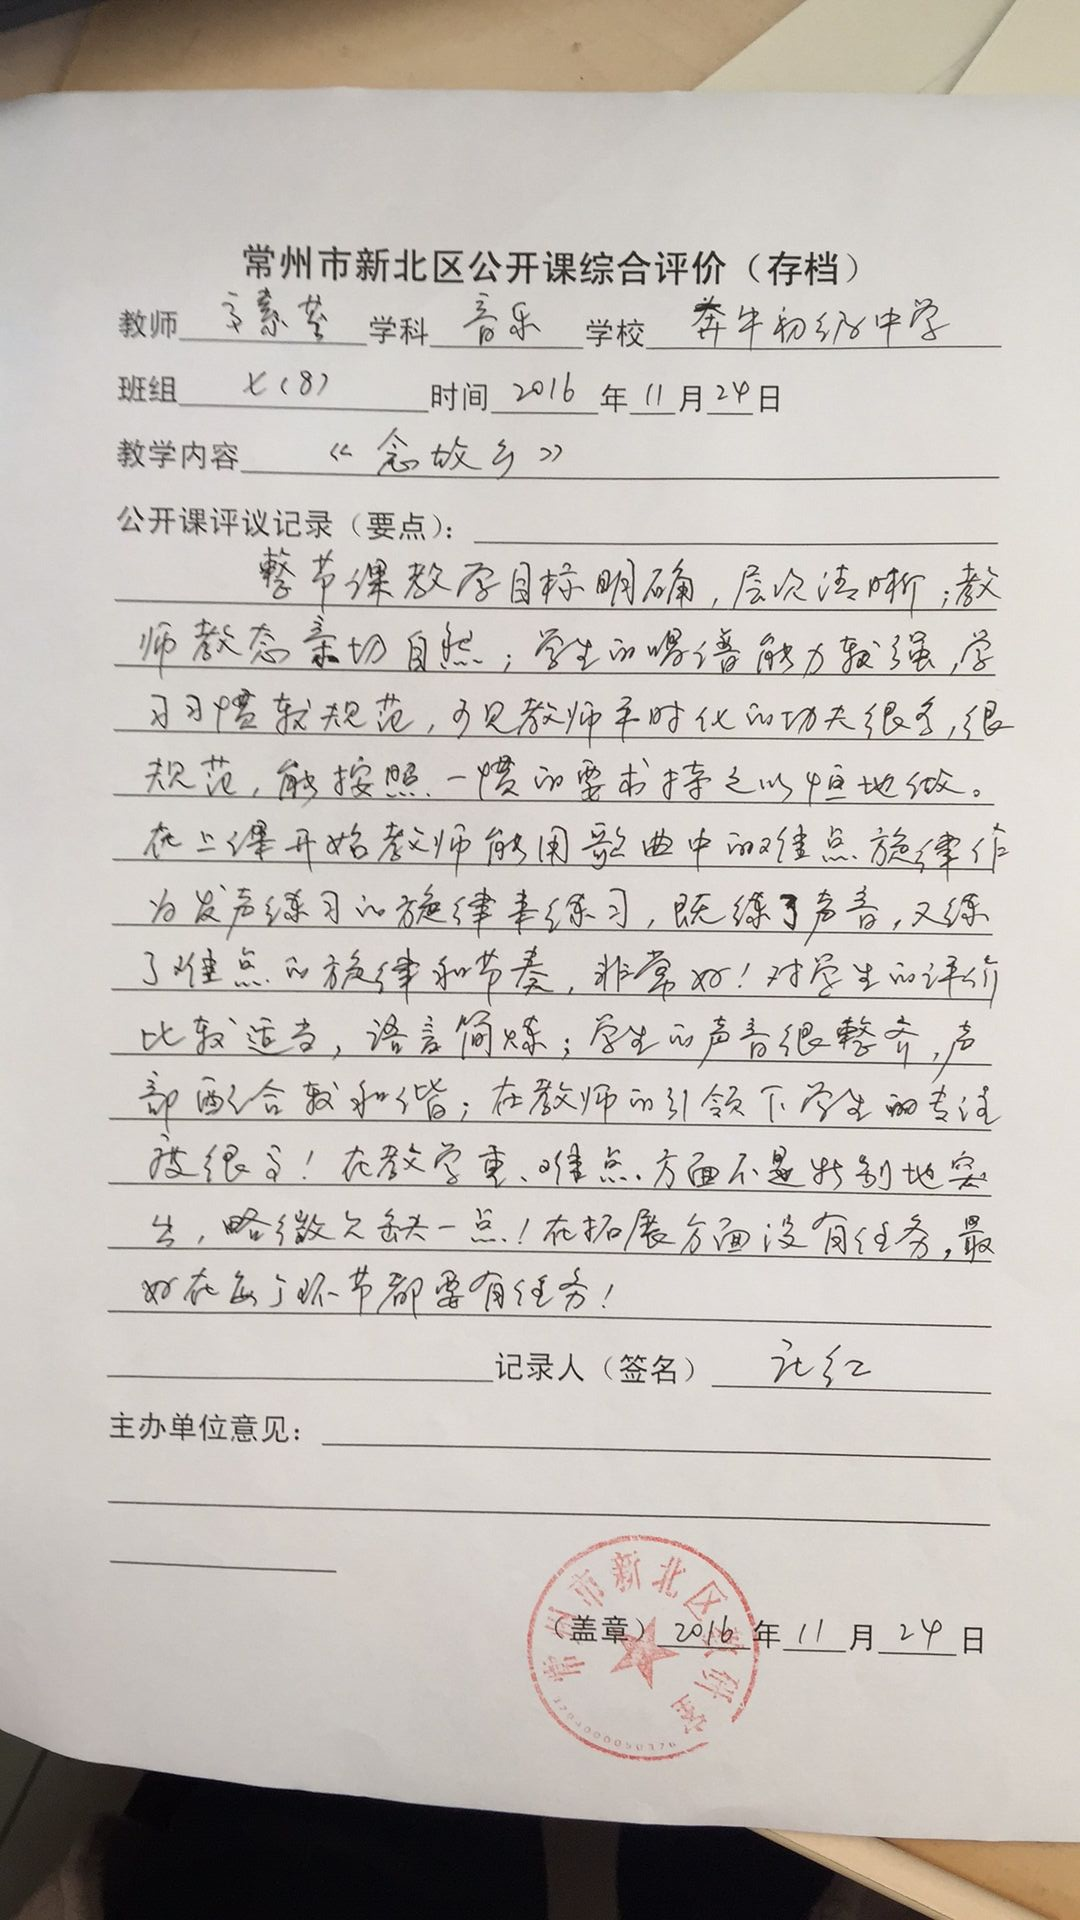 常州市新北区公开课综合评价（存档）
教师 学科 音乐 学校 奔牛初级中学
班组 七（8） 时间 2016 年 11 月 24 日
教学内容 《念故乡》
公开课评议记录（要点）：
整节课教学目标明确，层次清晰；教
师教态亲切自然；学生的唱谱能力较强，学
习习惯较规范，可见教师平时化的功夫很多，很
规范，能按照一惯的要求持之以恒地做。
在上课开始教师能用歌曲中的难点旋律作
为发声练习的旋律来练习，既练了声音，又练
了难点的旋律和节奏，非常好！对学生的评价
比较适当，语言简炼；学生的声音很整齐，声
部配合较和谐；在教师的引领下学生的专注
度很高！在教学重、难点方面不是特别地突
出，略微欠缺一点！在拓展方面没有任务，最
好在每个环节都要有任务！
记录人（签名） 红
主办单位意见：
（盖章）2016 年 11 月 24 日
常州市新北区教研室